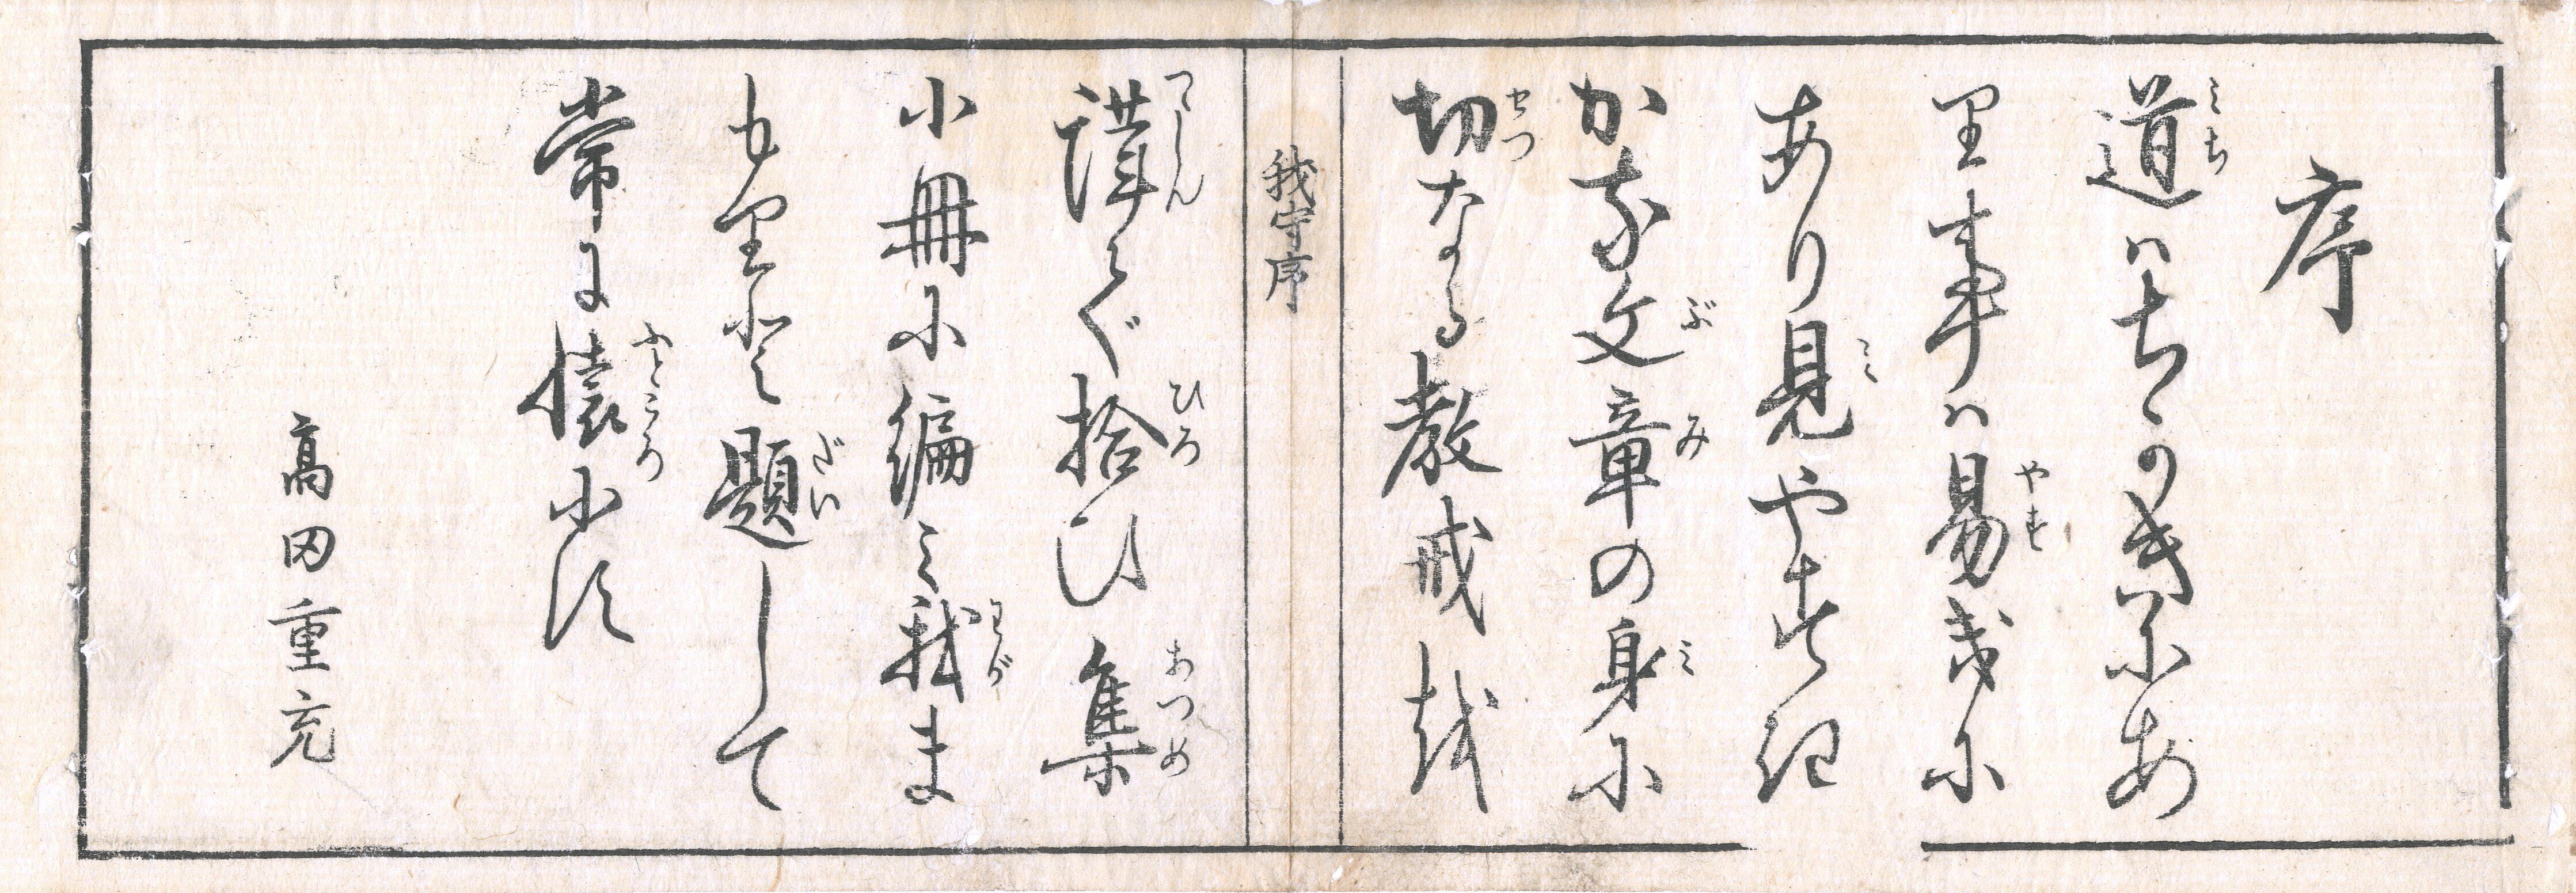 序
道はちかきにあ
り事は易きに
あり見やすき
かな文章の身に
切なる教戒を
我守序
謹で拾ひ集
小冊に編み我ま
もりと題して
常に懐にす
高田重充